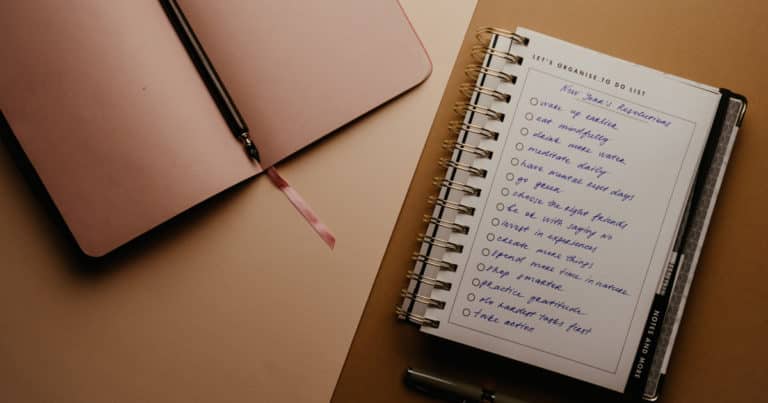 LET'S ORGANISE. TO DO LIST
New Year's Resolutions
wake up earlier
eat mindfully
drink more water
meditate daily
have mental rest days
go green
choose the right friends
be ok with saying no
invest in experiences
create more things
spend more time in nature
shop smarter
practice gratitude
do hardest tasks first
take action
NOTES AND MORE